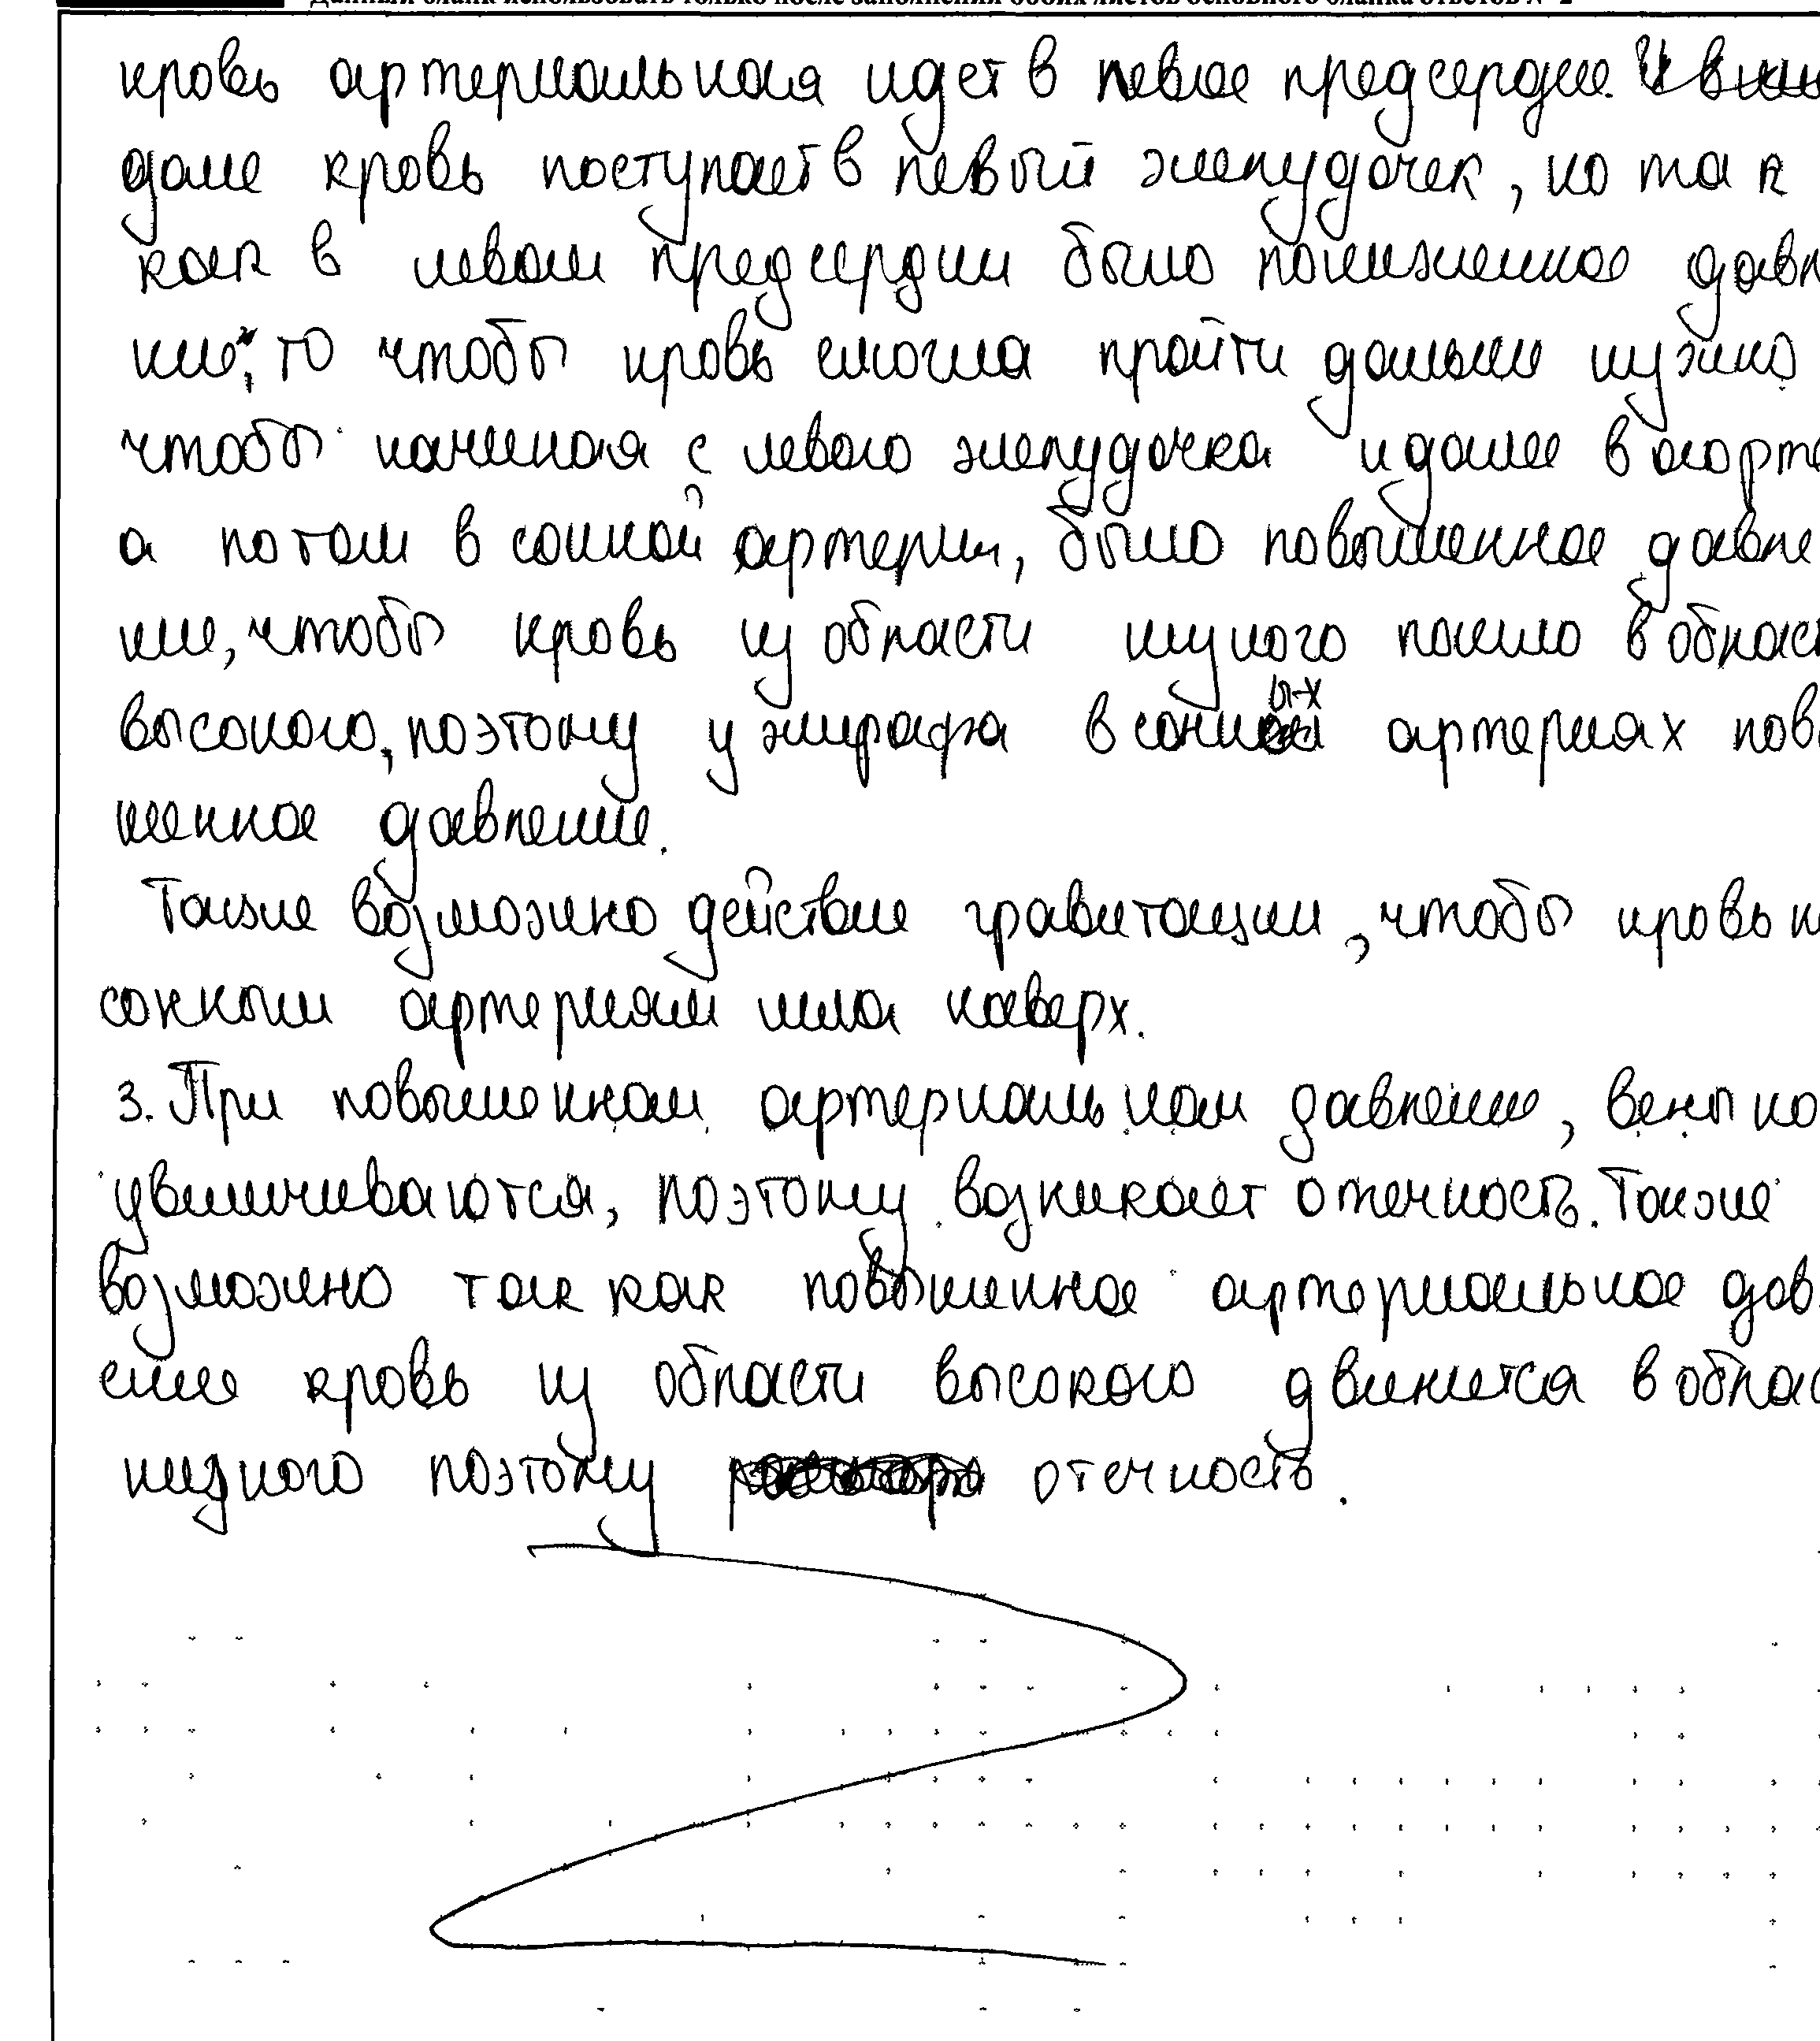 Данный бланк использовать только после заполнения обоих листов основного бланка ответов № 2
кровь артериальная идет в левое предсердие.
далее кровь поступает в левый желудочек, но так
как в левом предсердии было пониженное давл
ние, то чтобы кровь смогла пройти дальше нужно
чтобы начиная с левого желудочка и далее в аорте
а потом в сонной артерии, было повышенное давле
ние, чтобы кровь из области низкого пошло в област
высокого, поэтому у жирафа в сонных артериях пов
шенное давление.
Также возможно действие гравитации, чтобы кровь п
сонным артериям шла наверх.
3. При повышенном артериальном давление, вены но
увеличиваются, поэтому возникает отечность. Также
возможно так как повышенное артериальное дав
ение кровь из области высокого движется в облас
низкого поэтому отечность.